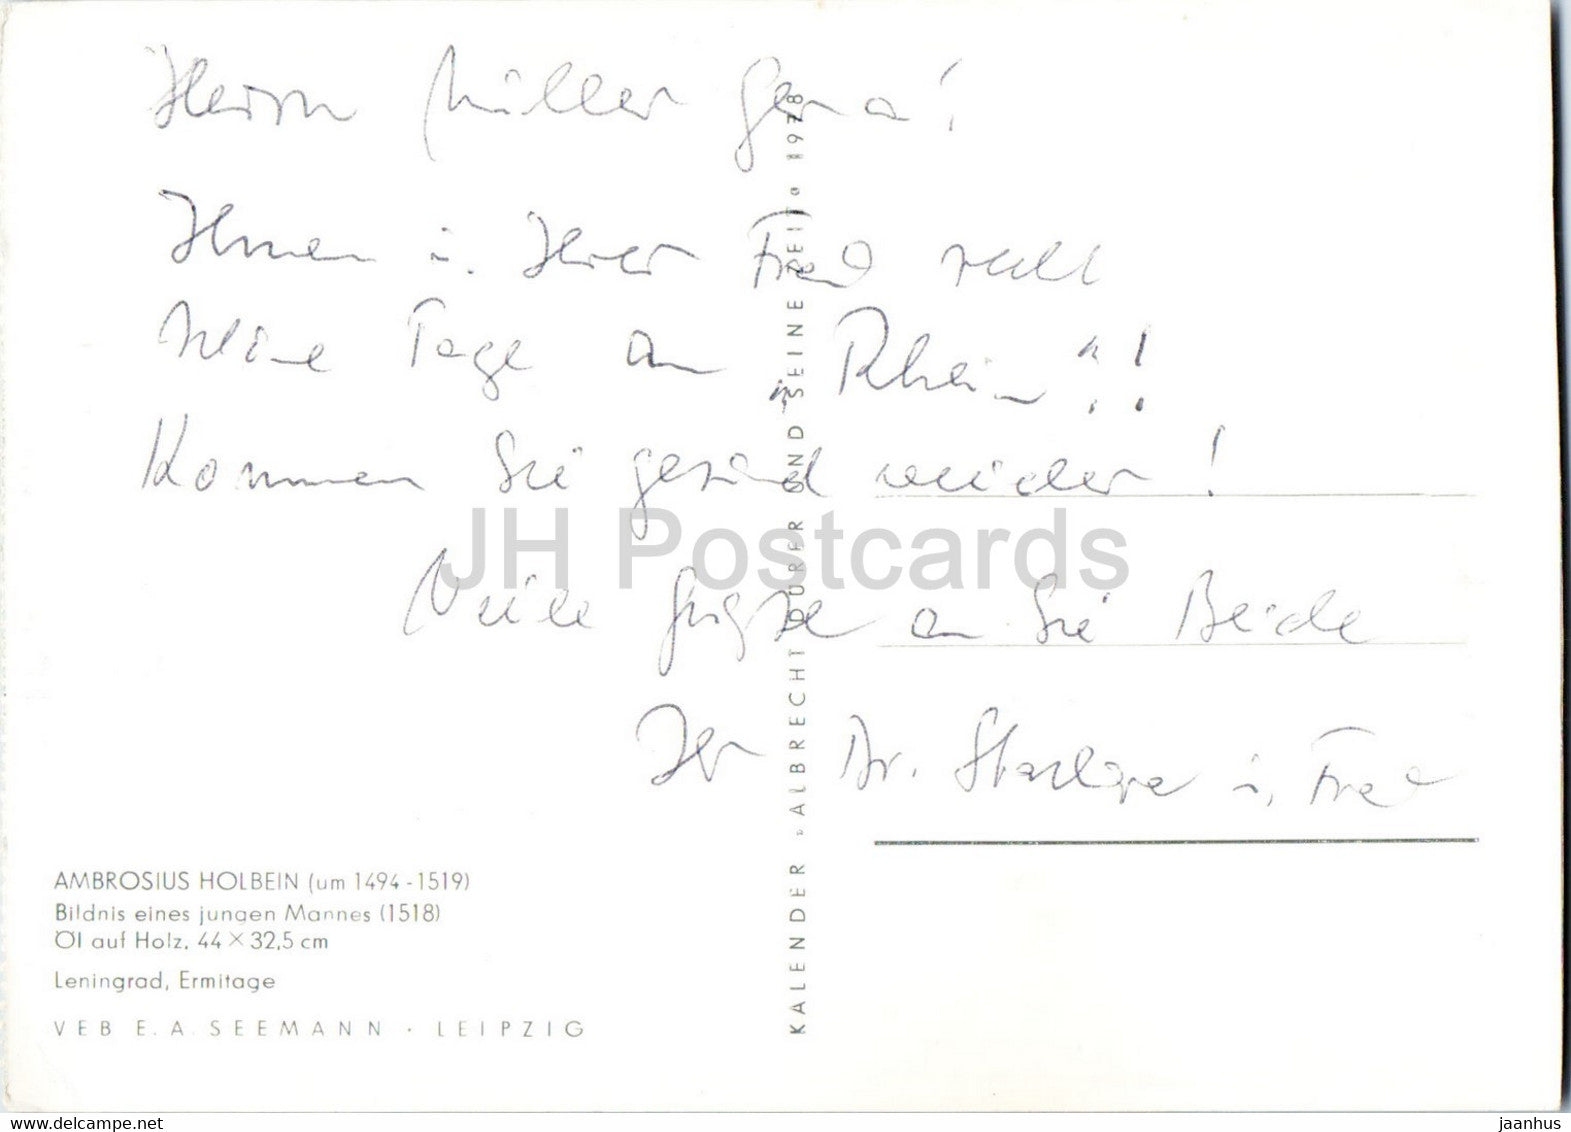 Herrn Müller Gera!
Ihnen u. Ihrer Frau
Tage am „Rhein“!!
Kommen Sie gesund wieder!
Viele Grüße an Sie Beide
Ihr Dr. u. Frau
AMBROSIUS HOLBEIN (um 1494-1519)
Bildnis eines jungen Mannes (1518)
Öl auf Holz, 44 × 32,5 cm
Leningrad, Ermitage
VEB E. A. SEEMANN · LEIPZIG
KALENDER »ALBRECHT DÜRER UND SEINE ZEIT« 1978
JH Postcards
www.delcampe.net
jaanhus